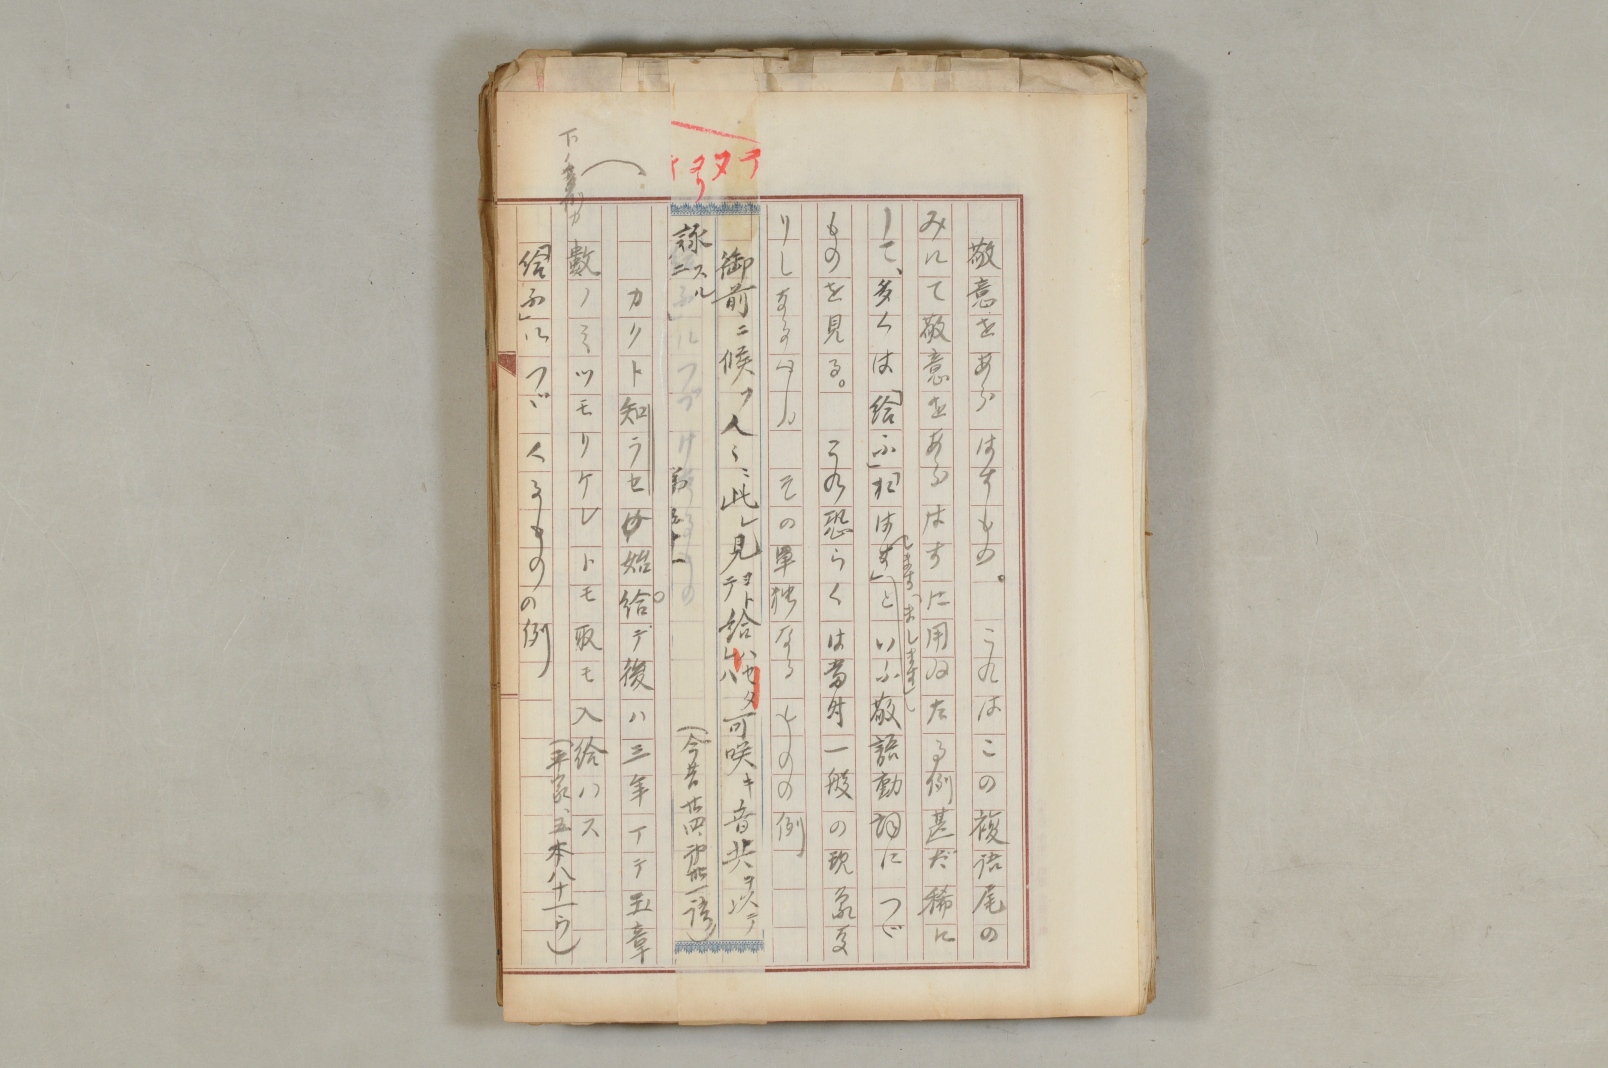 敬意をあらはすもの。これはこの複語尾の
みにて敬意をあらはすに用ゐたる例甚だ稀に
して、多くは「給ふ」「おはす」といふ敬語動詞につゞ
「します」「まします」
ものを見る。これ恐らくは当時一般の現象
その単独なるものの例
御前ニ候フ人々ニ此レ見ヨトテ給ハセタレバ可咲キ音共ヲ以テ
詠スルニ
(今昔廿四、第卅一語)
カクト知ラセ始給デ後ハ三年イテ玉章
數ノミツモリケレトモ取モ入給ハス
(平家、五本八十一ウ)
「給ふ」につゞくるものの例